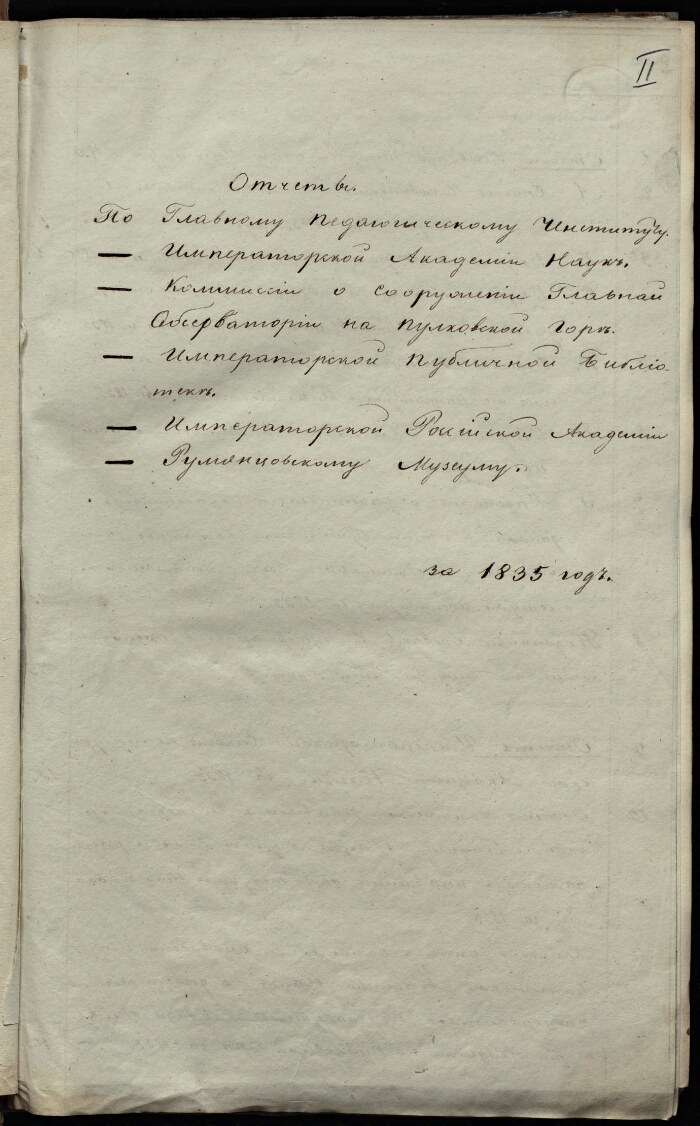 II
Отчеты.
По Главному Педагогическому Институту.
— Императорской Академіи Наукъ.
— Коммиссіи о сооруженіи Главной
Обсерваторіи на Пулковской горѣ.
— Императорской Публичной Библіо-
текѣ.
— Императорской Россійской Академіи
— Румянцовскому Музеуму.
за 1835 годъ.